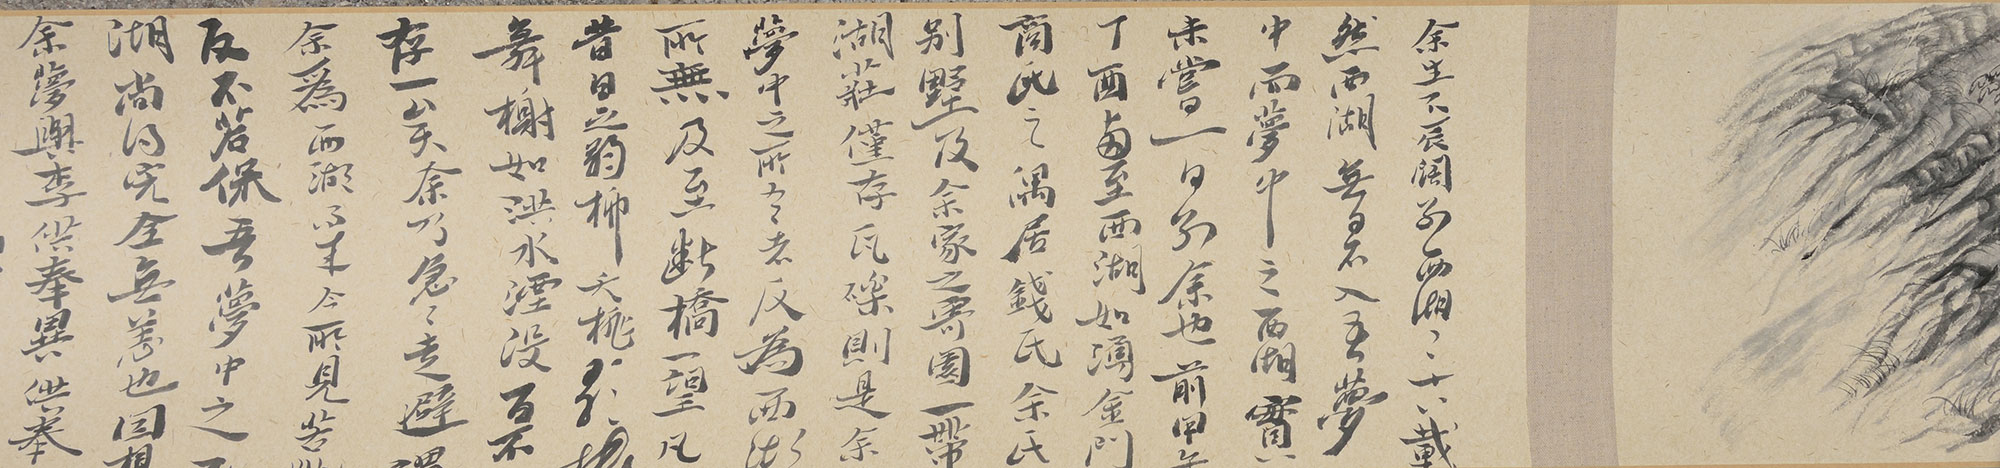 余生不辰闊別西湖二十八載
然西湖無日不入吾夢
中而夢中之西湖實
未嘗一日別余也前甲午
丁酉兩至西湖如湧金門
商氏之偶居錢氏余氏
別墅及余家之寄園一帶
湖莊僅存瓦礫則是余
夢中之所有者反為西湖
所無及至斷橋一望凡
昔日之弱柳夭桃歌樓
舞榭如洪水湮沒百不
存一矣余乃急〻走避謂
余為西湖而來今所見若
反不若保吾夢中之
湖尚得完全無恙也因想
余夢與李供奉異供奉